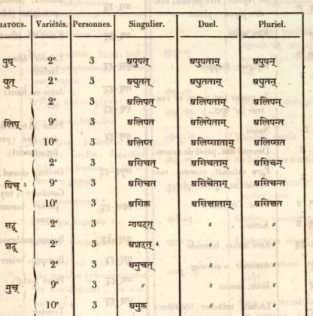 DHATOUS. Variétés. Personnes. Singulier. Duel. Pluriel.
पुष् 2ᵉ 3 अपुषत् अपुषताम् अपुषन्
2ᵉ 3
2ᵉ 3 अलिपत् अलिपताम् अलिपन्
लिप् 9ᵉ 3 अलिपत अलिपेताम् अलिपन्त
10ᵉ 3 अलिप्त अलिप्साताम् अलिप्सत
2ᵉ 3 असिचत् असिचताम् असिचन्
षिच् 9ᵉ 3 असिचत असिचेताम् असिचन्त
10ᵉ 3 असिक्त असिक्षाताम् असिक्षत
2ᵉ 3 〃 〃
शद् 2ᵉ 3 अशदत् 〃 〃
2ᵉ 3 अमुचत् 〃 〃
मुच् 9ᵉ 3 〃 〃 〃
10ᵉ 3 अमुक्त 〃 〃